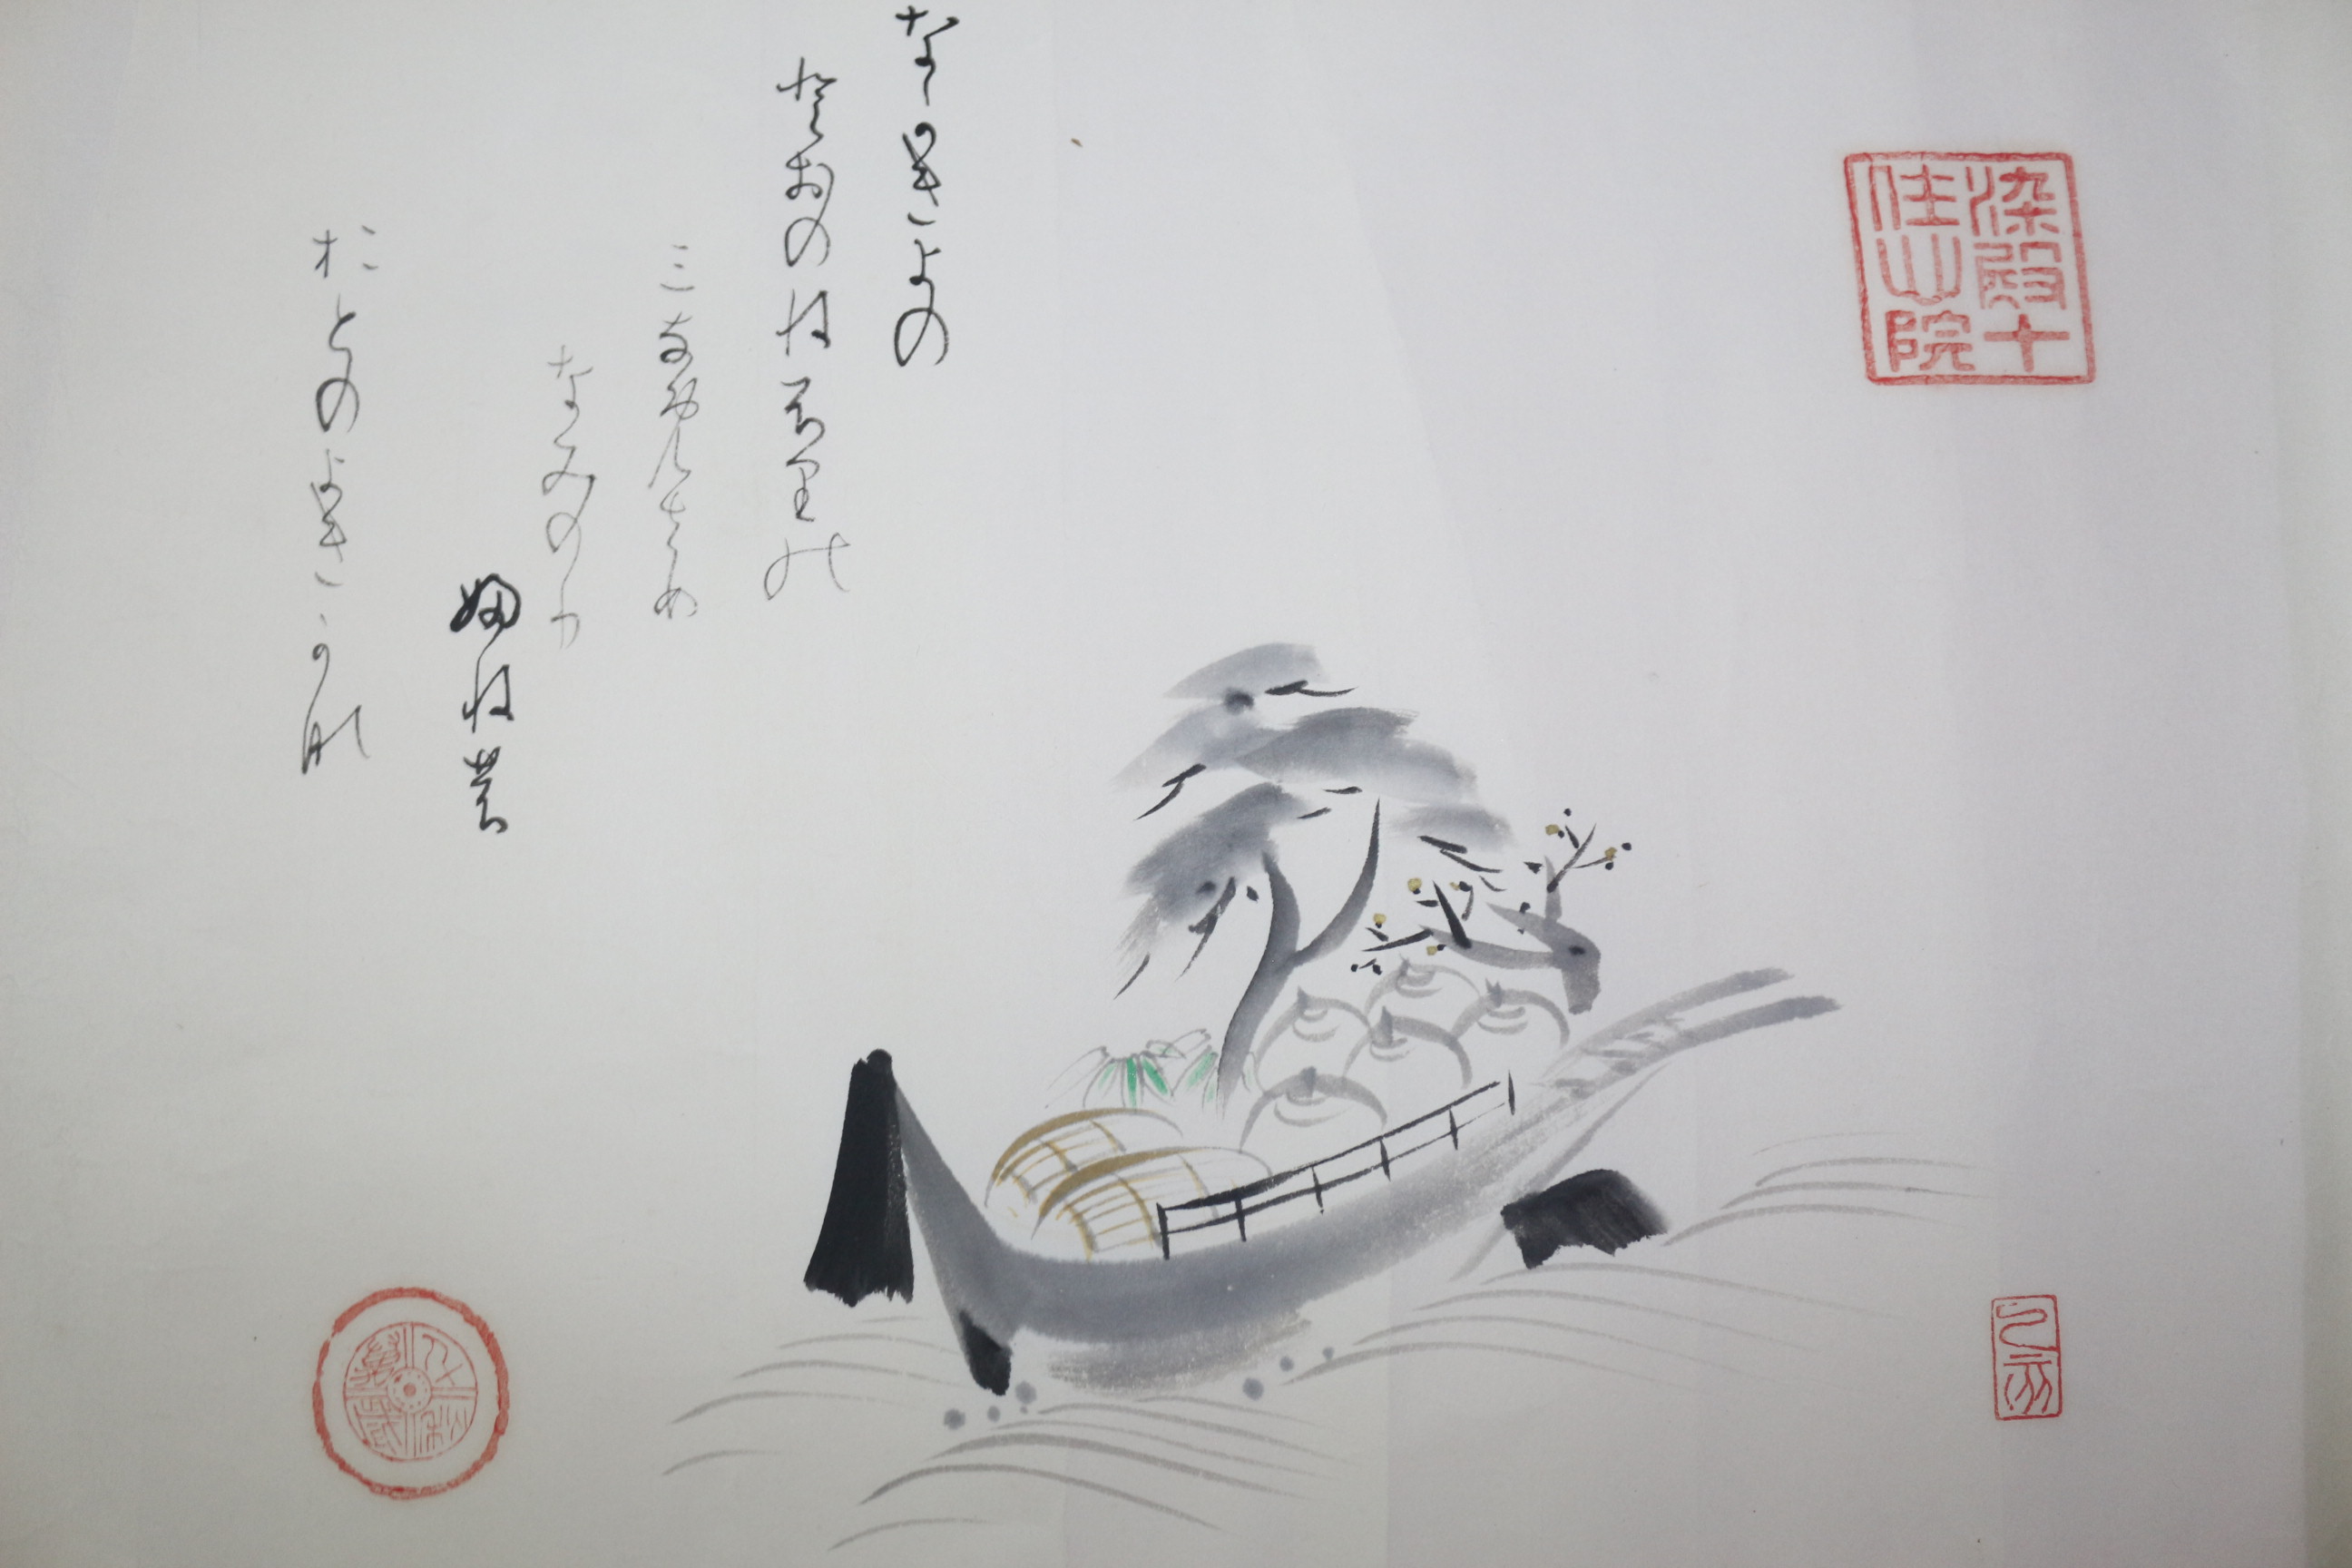 なかきよの
とおのねふりの
みなめさめ
なみのり
ふねの
おとのよきかな
染殿十
住心院